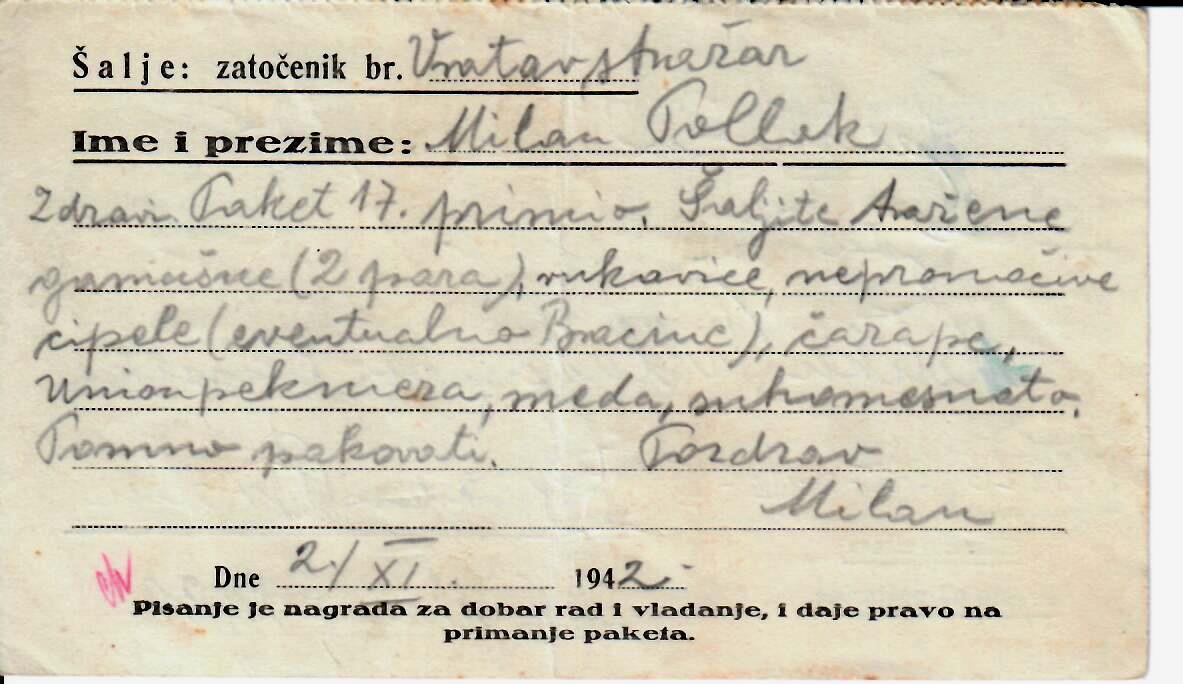 Šalje: zatočenik br.
Ime i prezime: Milan Pollak
Zdravi. Paket 17. primio. Šaljite
gamašne (2 para), rukavice, nepromočive
cipele (eventualno Bracine), čarape,
Union pekmeza, meda, suhomesnato.
Pomno pakovati. Pozdrav
Milan
Dne 2./XI. 1942.
Pisanje je nagrada za dobar rad i vladanje, i daje pravo na
primanje paketa.